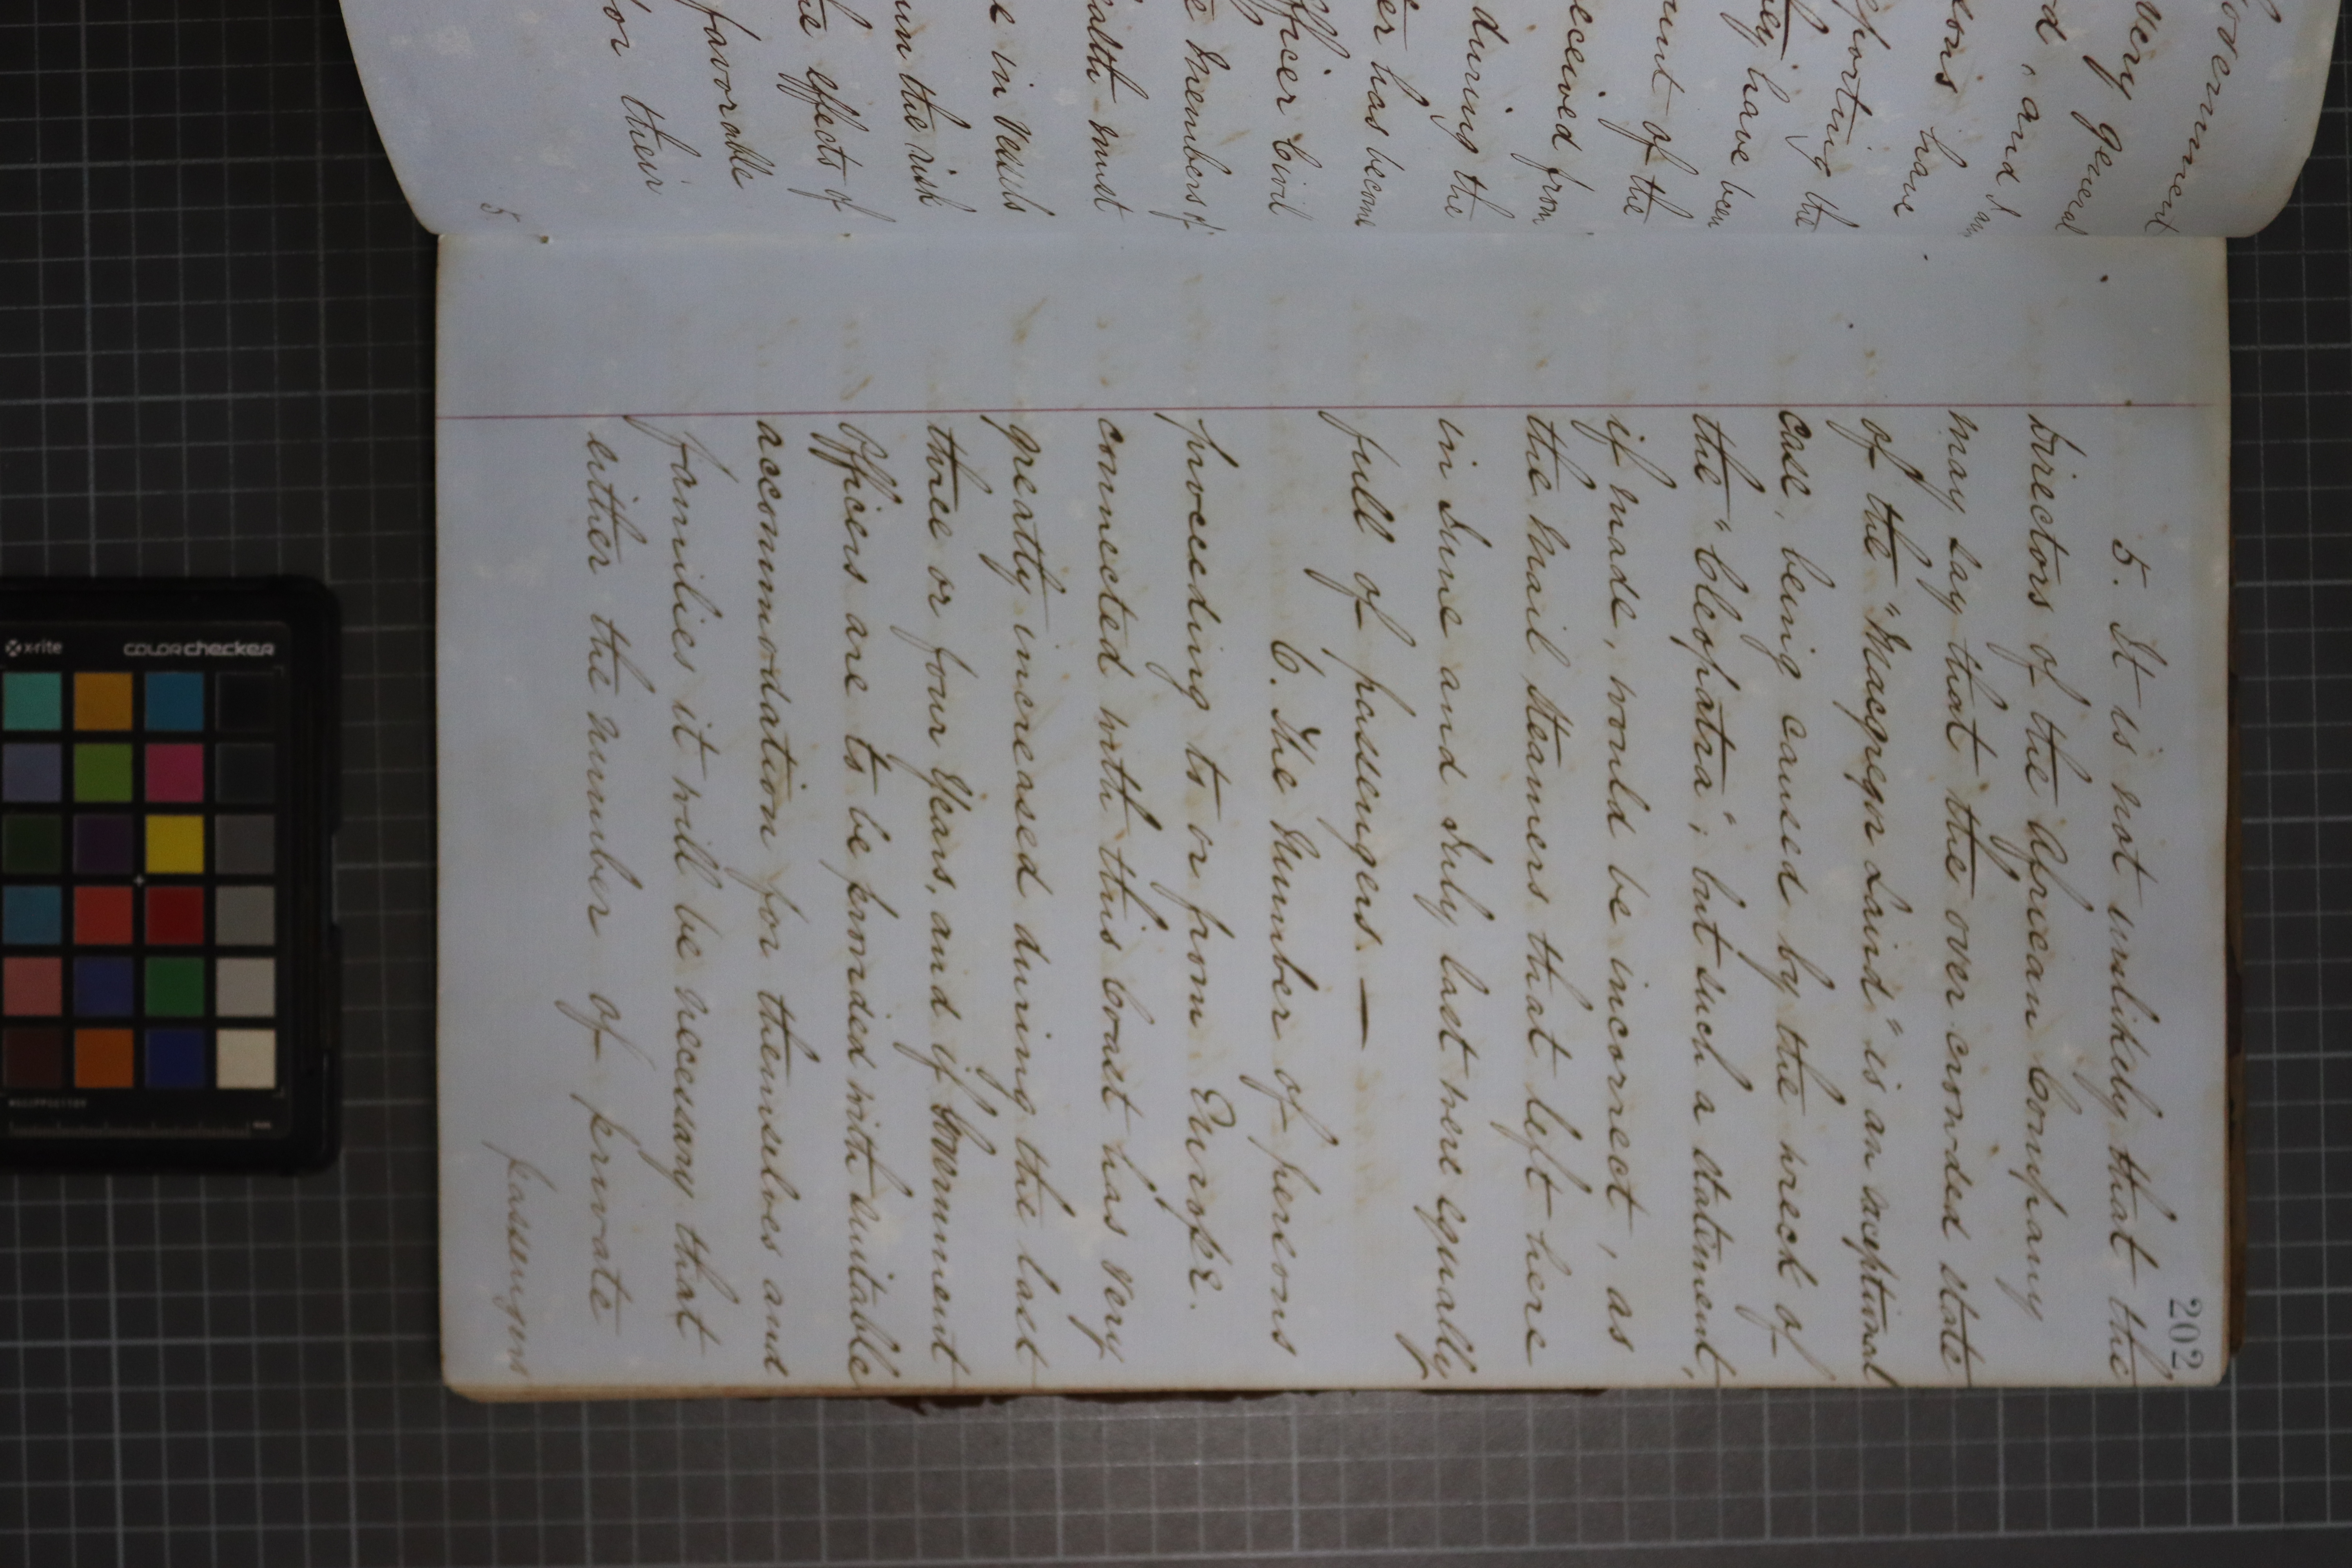 overnment
very general
d, and I am
sons have
eporting the
hey have been
unt of the
eceived from
during the
er has become
fficer Civil
e Members of
ealth must
e in vessels
un the risk
he effects of
favorable
or their
5
202
5. It is not unlikely that the
Directors of the African Company
may say that the over crowded state
of the "Macgregor Laird" is an exceptional
case, being caused by the wreck of
the "Cleopatra"; but such a statement,
if made, would be incorrect, as
the Mail Steamers that left here
in June and July last were equally
full of passengers —
6. The Number of persons
proceeding to or from Europe.
connected with this Coast has very
greatly increased during the last
three or four Years, and if Government
Officers are to be provided with suitable
accommodation for themselves and
families it will be necessary that
either the number of private
passengers
x-rite
colorchecker